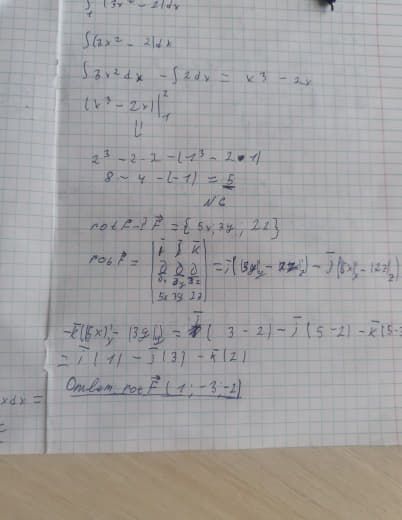 ∫₁ (3x² - 2)dx
∫(3x² - 2)dx
∫3x²dx - ∫2dx = x³ - 2x
(x³ - 2x)|₁²
2³ - 2·2 - (1³ - 2·1)
8 - 4 - (-1) = 5
N6
rot F⃗ = {5x, 3y, 2z}
rot F⃗ = | i j k ∂ ∂ ∂ ∂x ∂y ∂z 5x 3y 2z | = i((3y)'y - 2z)'z) - j((5x)'x - (2z)'z)
-k((5x)'x - (3y)'y) = i(3 - 2) - j(5 - 2) - k(5 - 3
= i(1) - j(3) - k(2)
Ответ rot F⃗ (1; -3; -2)
xdx =
=